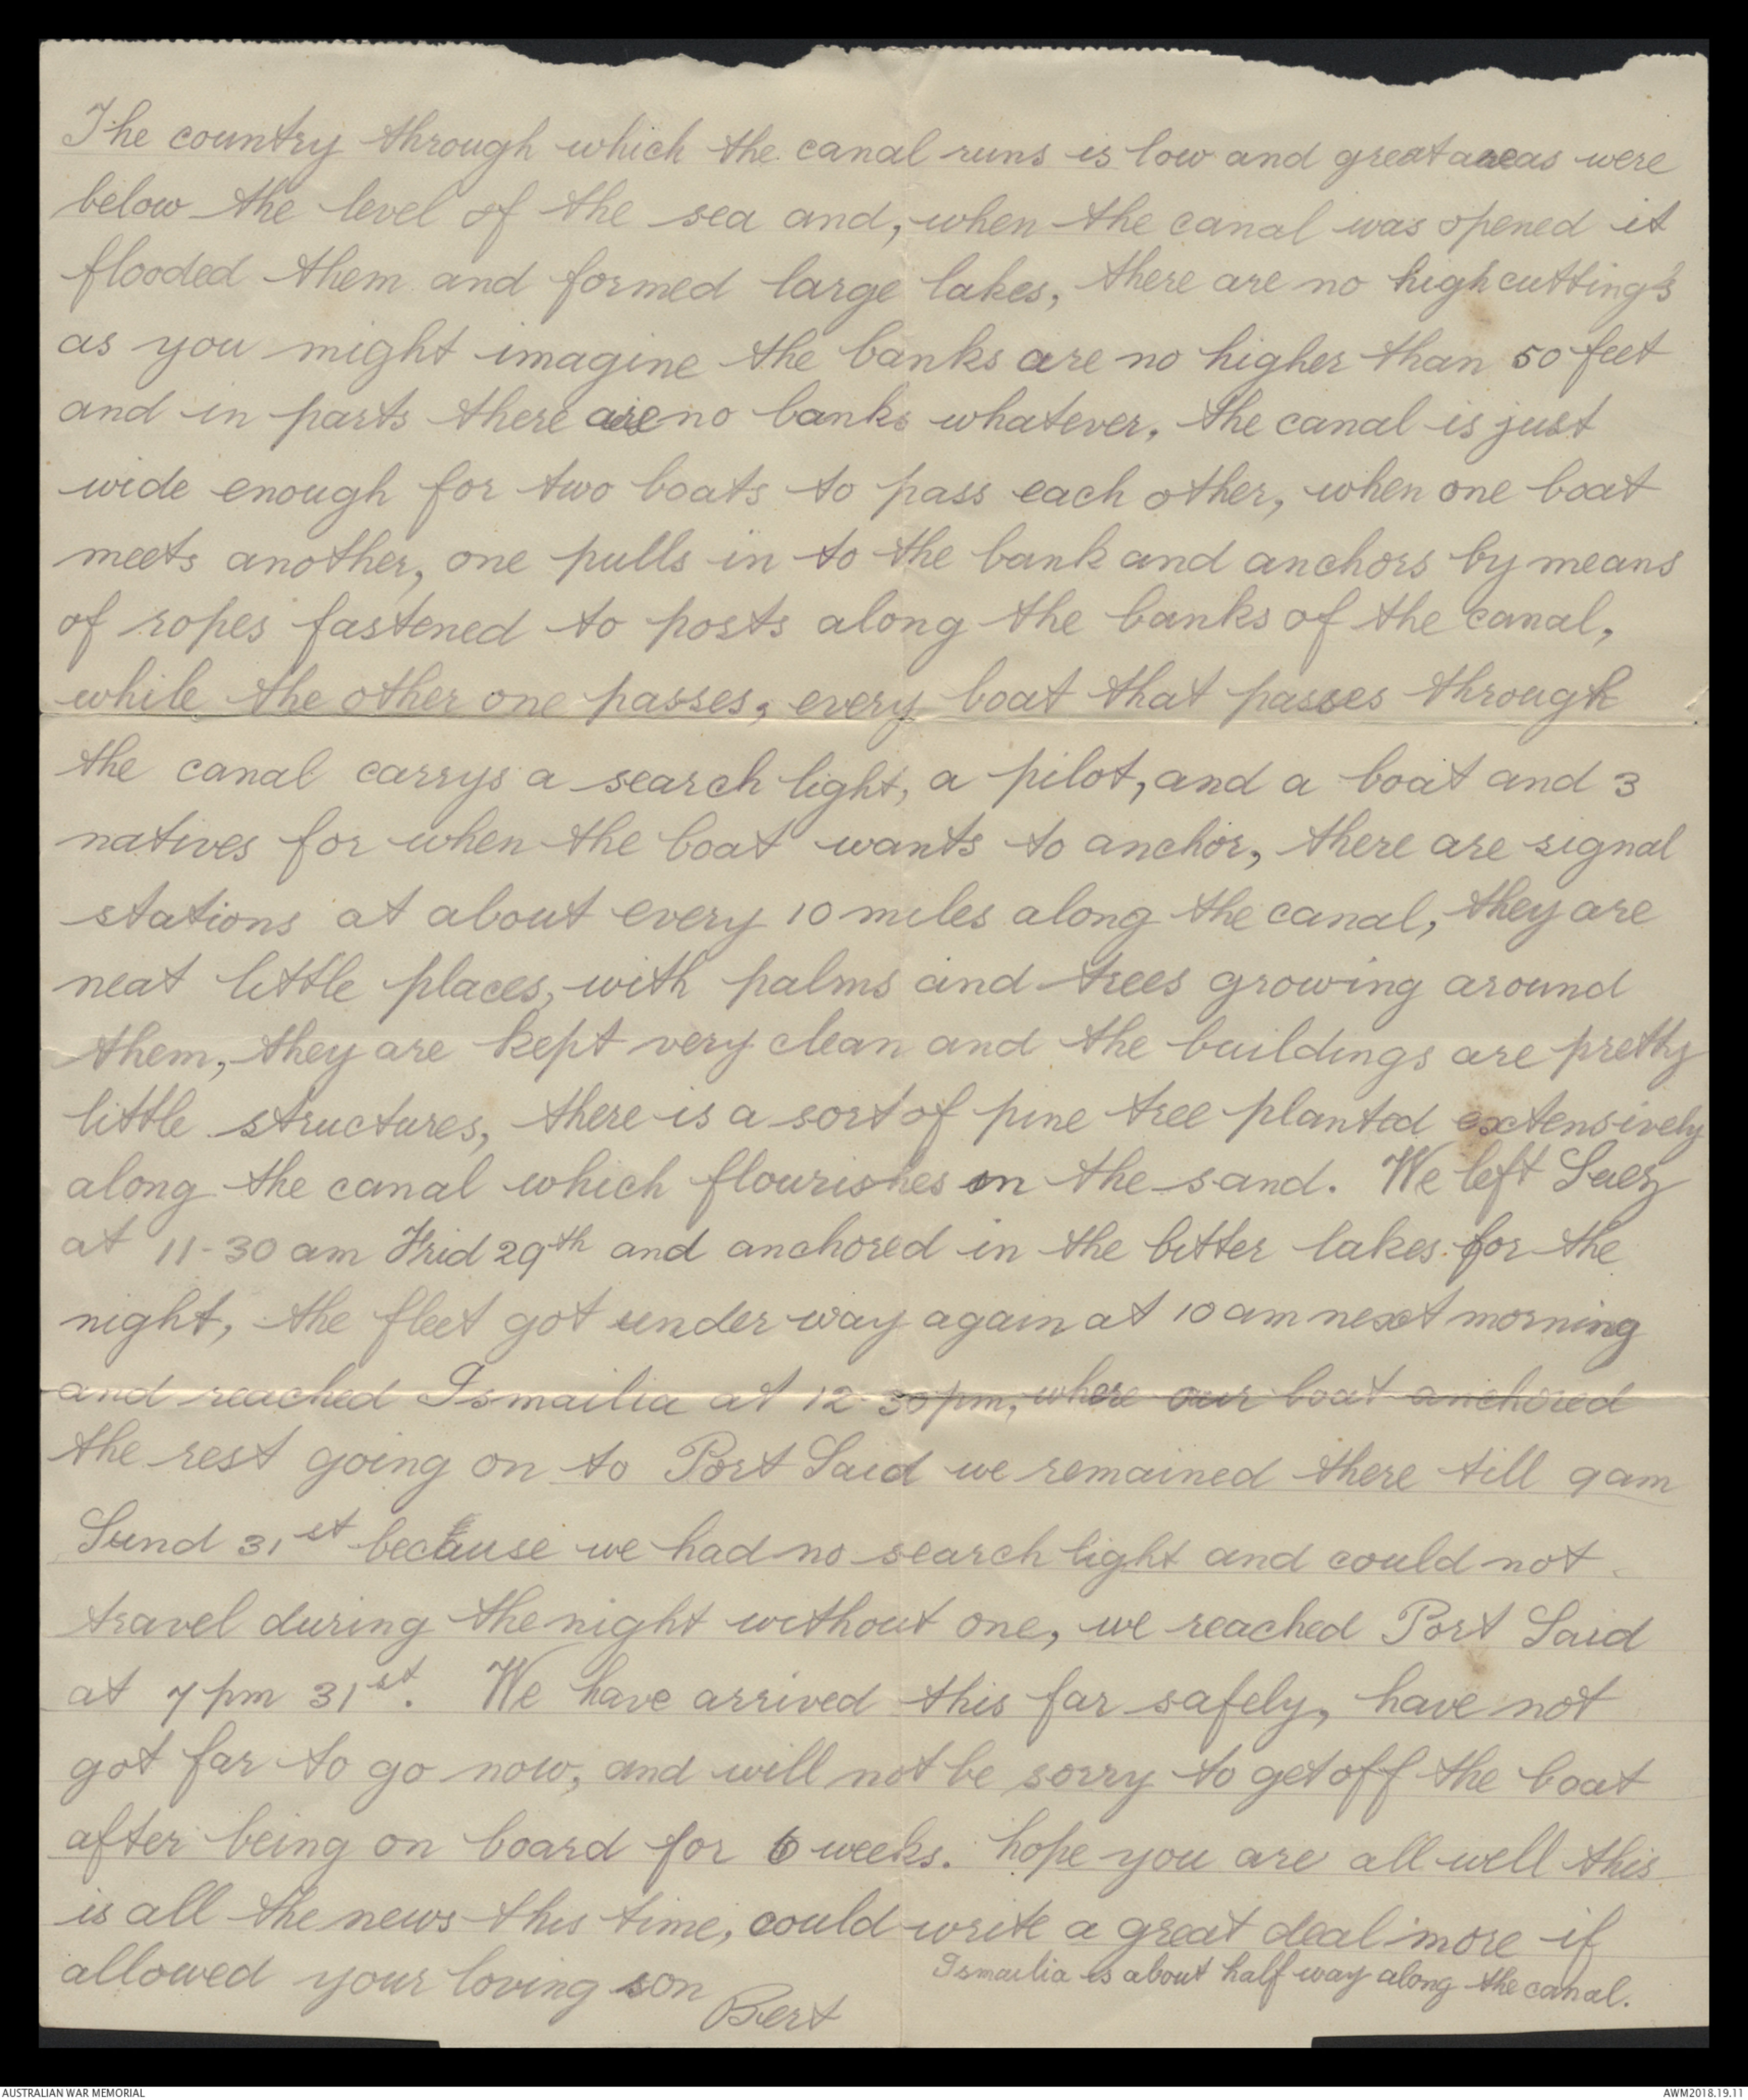 The country through which the canal runs is low and great areas were
below the level of the sea and, when the canal was opened it
flooded them and formed large lakes, there are no high cuttings
as you might imagine the banks are no higher than 50 feet
and in parts there are no banks whatever. the canal is just
wide enough for two boats to pass each other, when one boat
meets another, one pulls in to the bank and anchors by means
of ropes fastened to posts along the banks of the canal,
while the other one passes, every boat that passes through
the canal carrys a search light, a pilot, and a boat and 3
natives for when the boat wants to anchor, there are signal
stations at about every 10 miles along the canal, they are
neat little places, with palms and trees growing around
them, they are kept very clean and the buildings are pretty
little structures, there is a sort of pine tree planted extensively
along the canal which flourishes on the sand. We left Suez
at 11-30 am Frid 29th and anchored in the bitter lakes for the
night, the fleet got under way again at 10 am next morning
and reached Ismailia at 12-30 pm, where our boat anchored
the rest going on to Port Said we remained there till 9 am
Sund 31st because we had no search light and could not
travel during the night without one, we reached Port Said
at 7 pm 31st. We have arrived this far safely, have not
got far to go now, and will not be sorry to get off the boat
after being on board for 6 weeks. hope you are all well this
is all the news this time, could write a great deal more if
allowed your loving son
Bert
Ismailia is about half way along the canal.
AUSTRALIAN WAR MEMORIAL
AWM2018.19.11